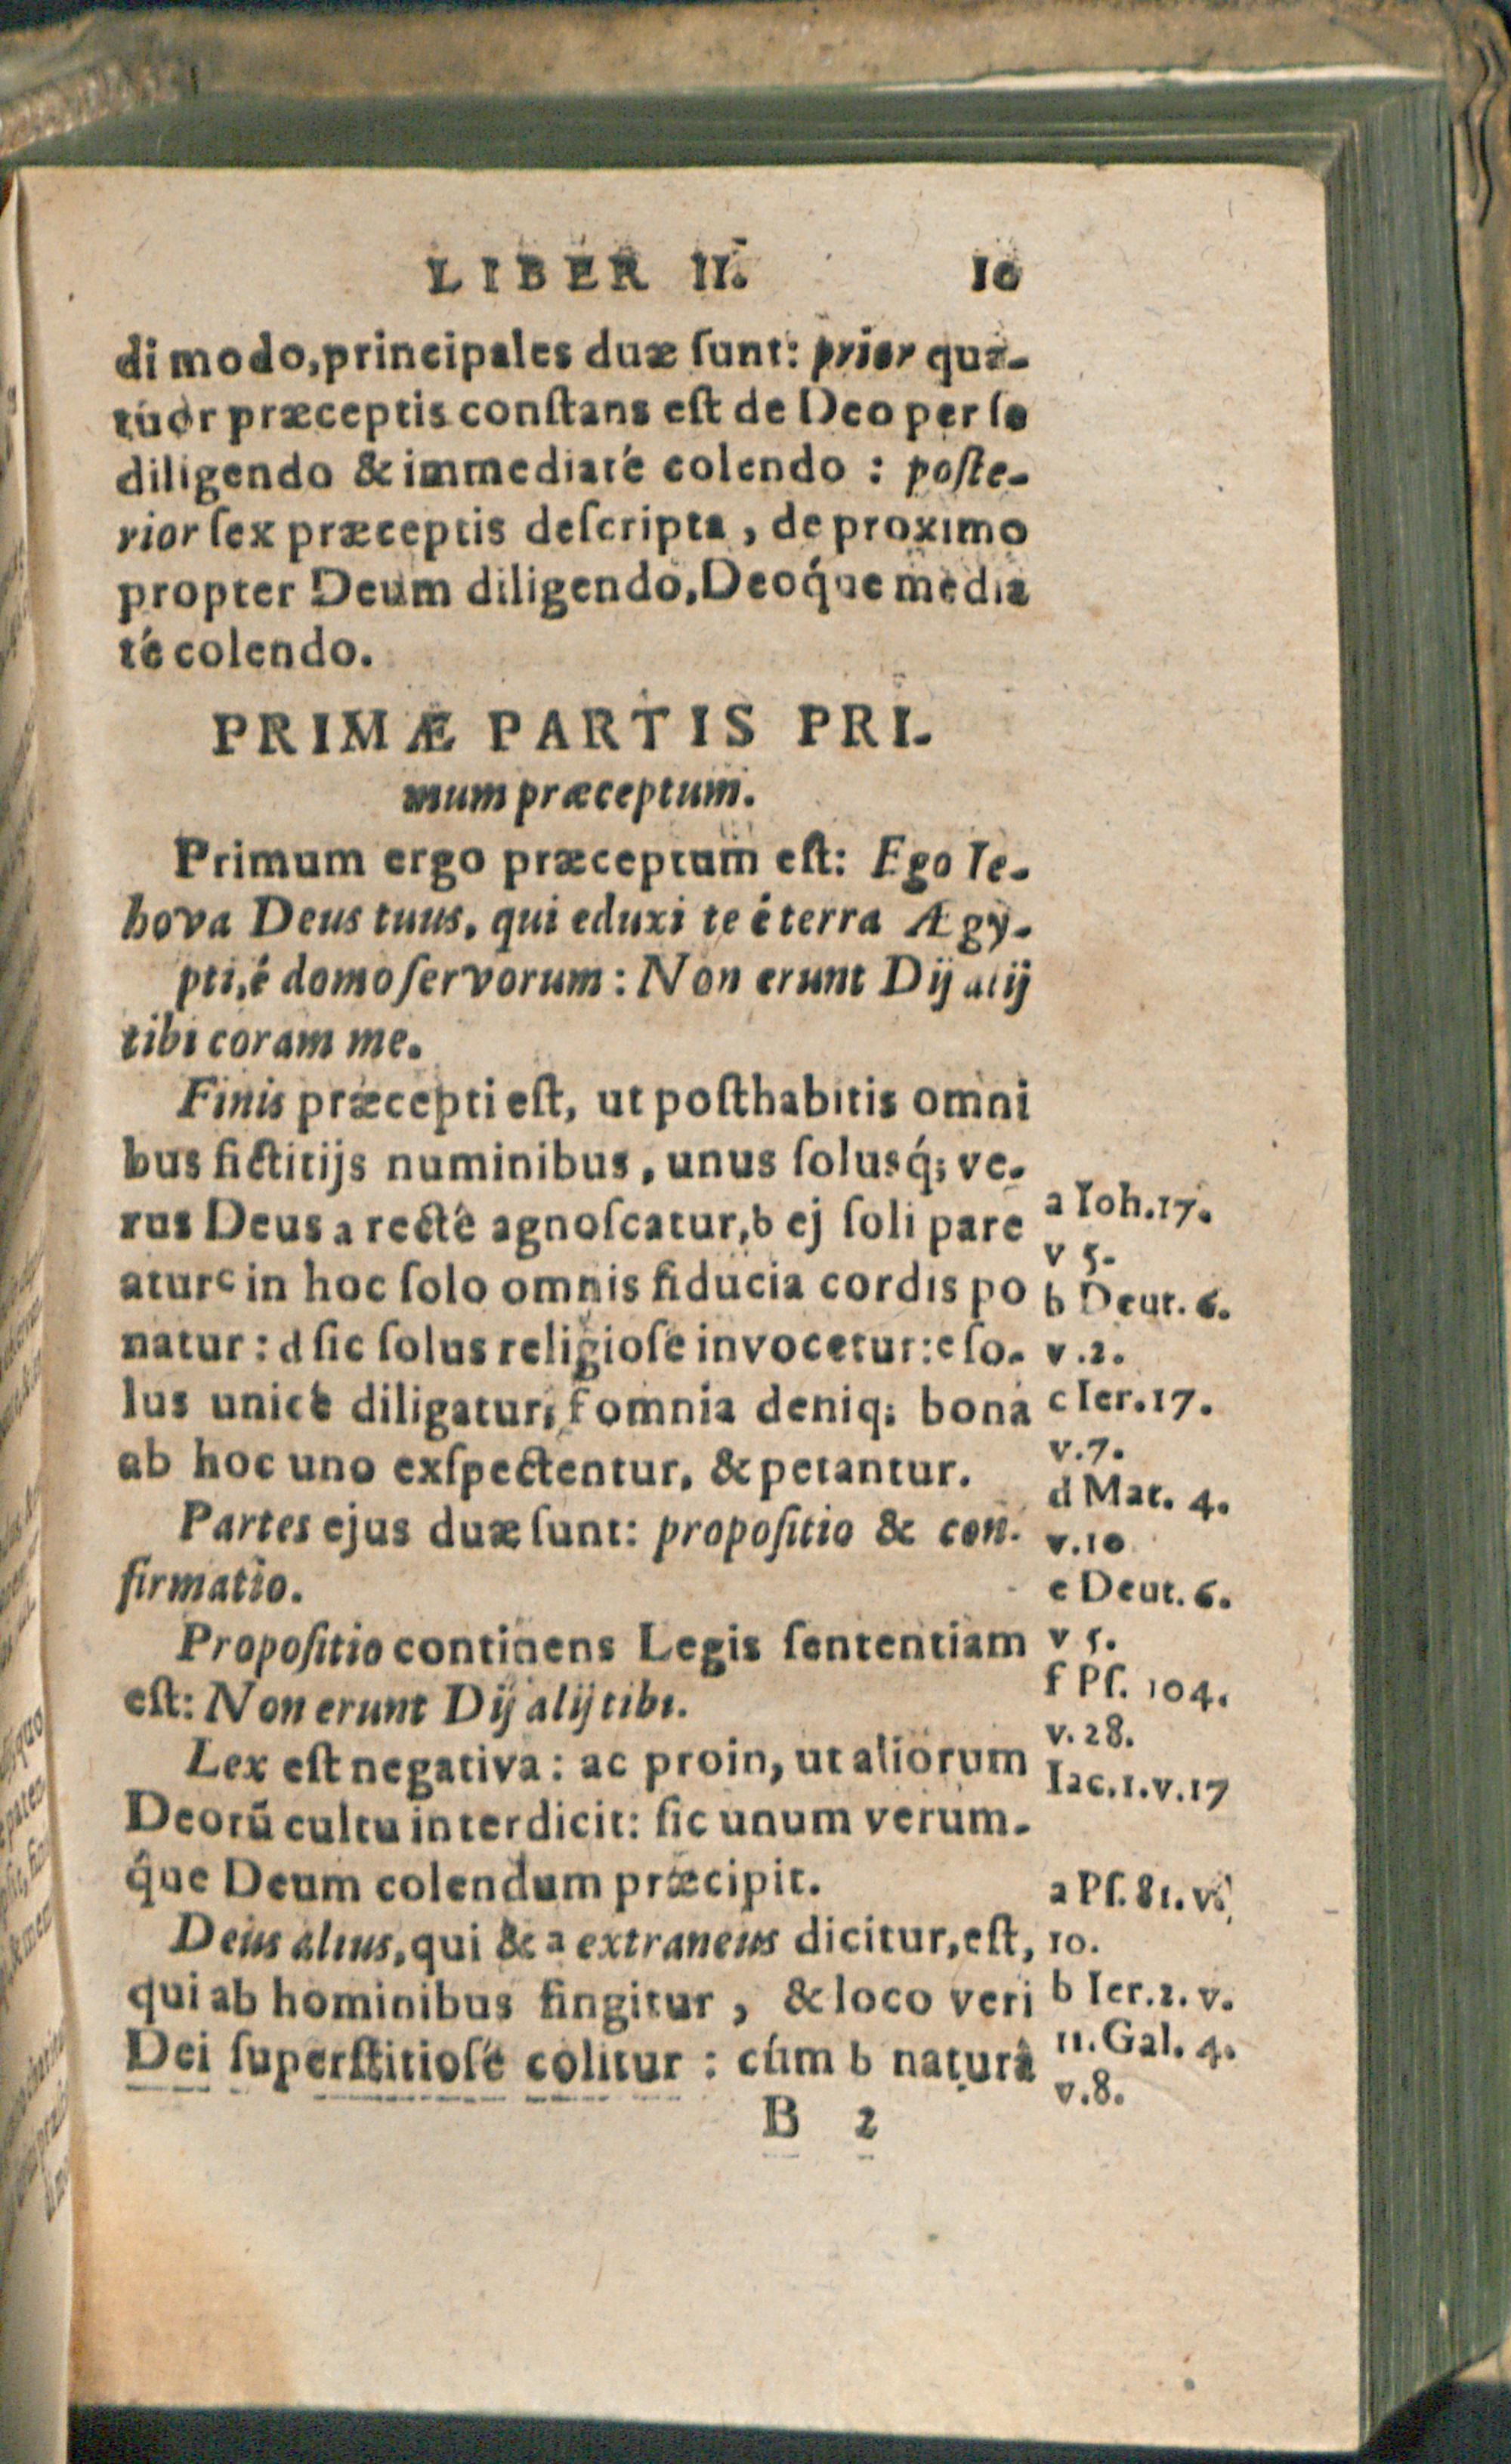 LIBER II. 10
di modo, principales duæ ſunt: prior qua-
tuor præceptis conſtans eſt de Deo per ſe
diligendo & immediaté colendo : poſte-
rior ſex præceptis deſcripta, de proximo
propter Deum diligendo, Deoq́ue media
té colendo.
PRIMÆ PARTIS PRI-
mum præceptum.
Primum ergo præceptum eſt: Ego Ie-
hova Deus tuus, qui eduxi te é terra Ægy-
pti, é domo ſervorum: Non erunt Dij alij
tibi coram me.
Finis præcepti eſt, ut poſthabitis omni
bus fictitijs numinibus, unus ſolusq́; ve-
rus Deus a recté agnoſcatur, b ej ſoli pare
atur c in hoc ſolo omnis fiducia cordis po
natur: d ſic ſolus religioſe invocetur: e ſo-
lus unicè diligatur, f omnia deniq; bona
ab hoc uno exſpectentur, & petantur.
Partes ejus duæ ſunt: propoſitio & con-
firmatio.
Propoſitio continens Legis ſententiam
eſt: Non erunt Dij alij tibi.
Lex eſt negativa: ac proin, ut aliorum
Deorū cultu interdicit: ſic unum verum-
q́ue Deum colendum præcipit.
Deus alius, qui & a extraneus dicitur, eſt,
qui ab hominibus fingitur, & loco veri
Dei ſuperſtitioſé colitur : cúm b naturâ
B 2
a Ioh.17.
v 5.
b Deut. 6.
v.2.
c Ier.17.
v.7.
d Mat. 4.
v.10
e Deut. 6.
v 5.
f Pſ. 104.
v. 28.
Iac.1.v.17
a Pſ. 81. v.
10.
b Ier.2. v.
11. Gal. 4.
v.8.